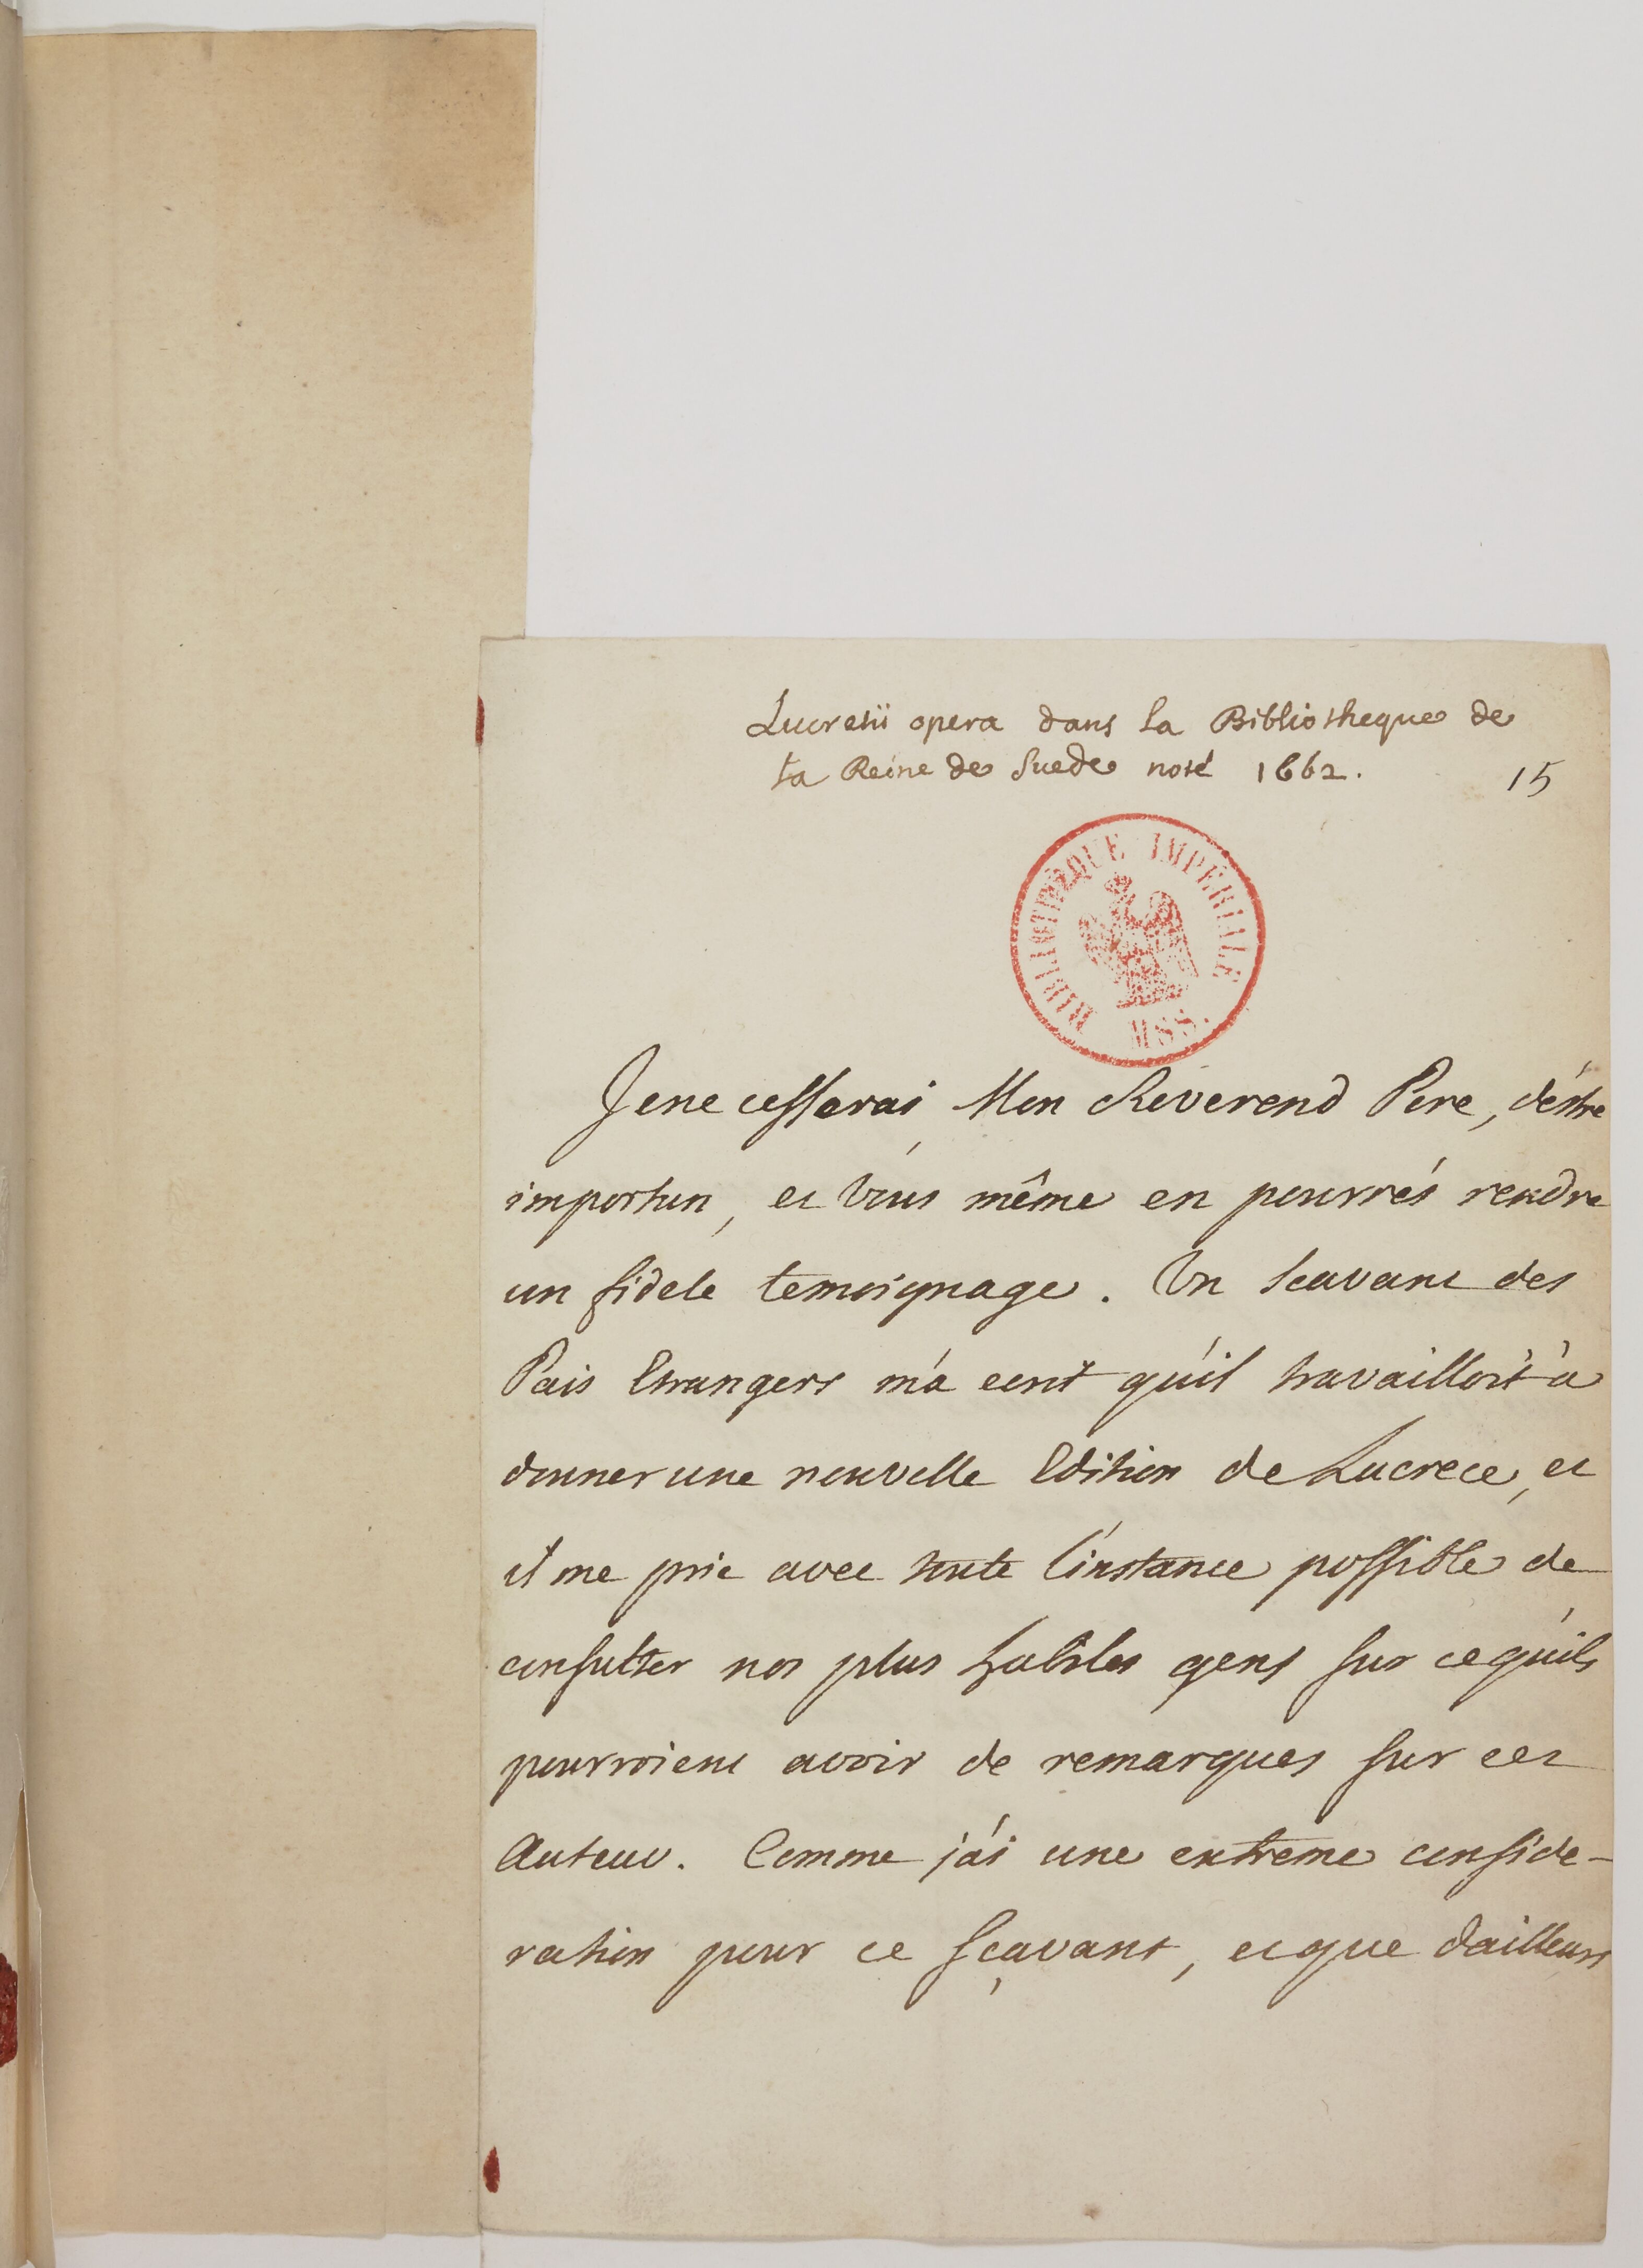 Lucretii opera dans la Bibliotheque de
la Reine de Suede noté 1662.
15
BIBLIOTHÈQUE IMPÉRIALE
MSS.
Je ne cesserai, Mon Reverend Pere, d'éstre
importun, et Vous même en pourrés rendre
un fidele temoignage. Un scavant des
Pais Etrangers m'a ecrit qu'il travailloit à
donner une nouvelle Edition de Lucrece, et
il me prie avec toute l'instance possible de
consulter nos plus habiles gens sur ce qu'ils
pourroient avoir de remarques sur cet
Auteur. Comme j'ai une extreme conside-
ration pour ce sçavant, et que dailleurs